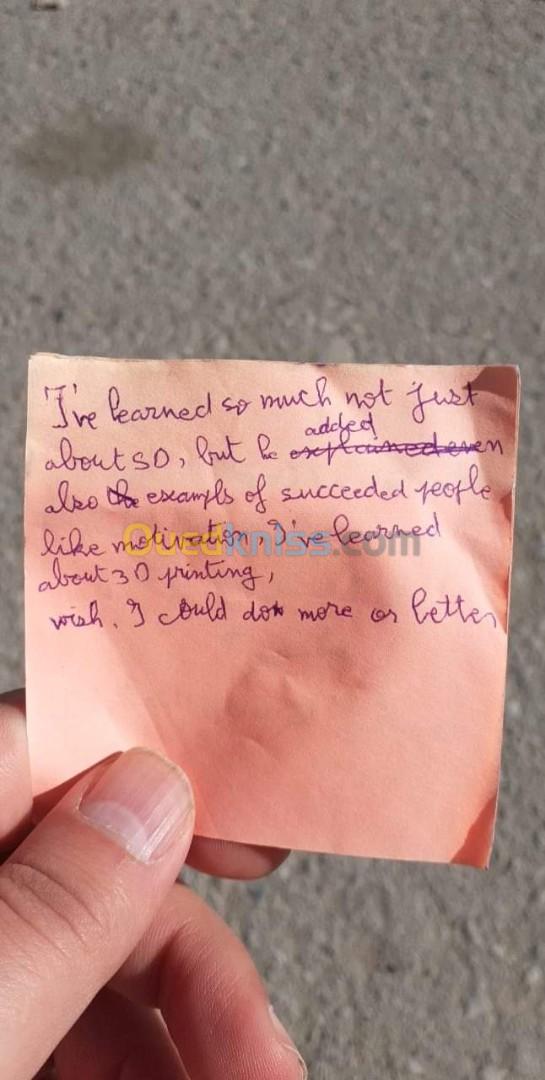 I've learned so much not just
added
about SD, but he explained even
also the exampls of succeeded people
like motivation, I've learned
about 3D printing,
wish. I could do more or better
Ouedkniss.com